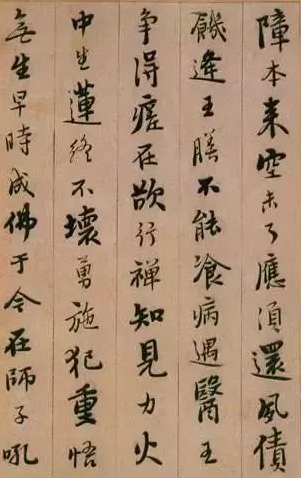 障本来空未了應須還夙債
饑逢王膳不能飡病遇醫王
爭得瘥在欲行禪知見力火
中生蓮終不壞勇施犯重悟
無生早時成佛于今在師子吼